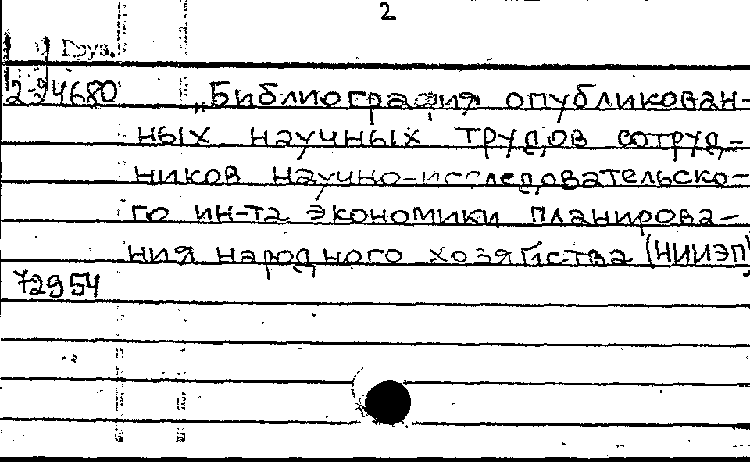 2
Груз.
2-94680 „Библиография опубликован-
ных научных трудов сотруд-
ников научно-исследовательско-
го ин-та экономики планирова-
ния народного хозяйства (НИИЭП)
72954